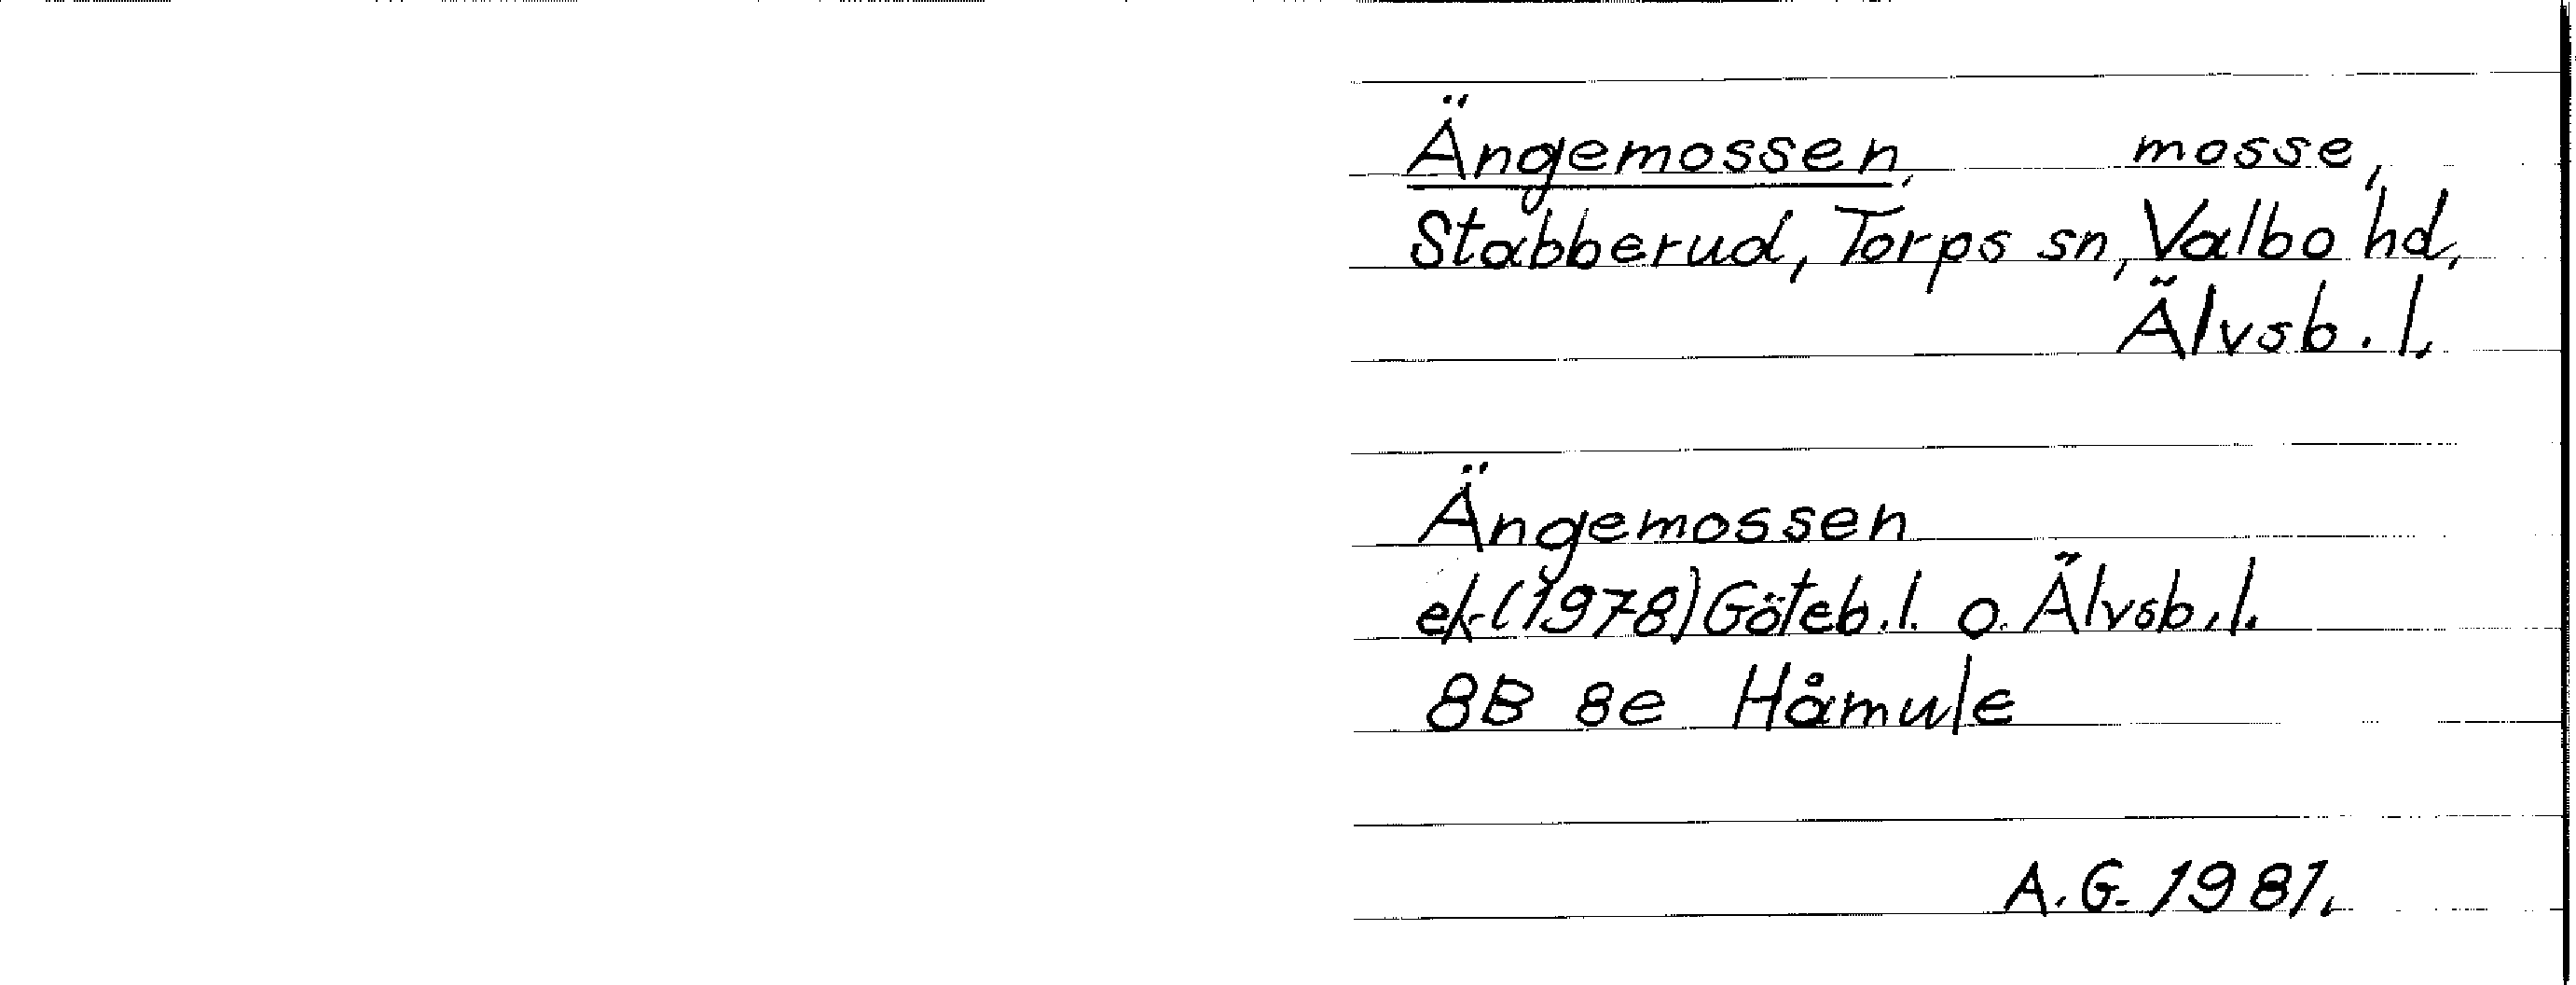 Ängemossen, mosse,
Stabberud, Torps sn, Valbo hd,
Älvsb. l.
Ängemossen
ek (1978) Göteb. l. o. Älvsb. l.
8B 8e Håmule
A. G. 1981.